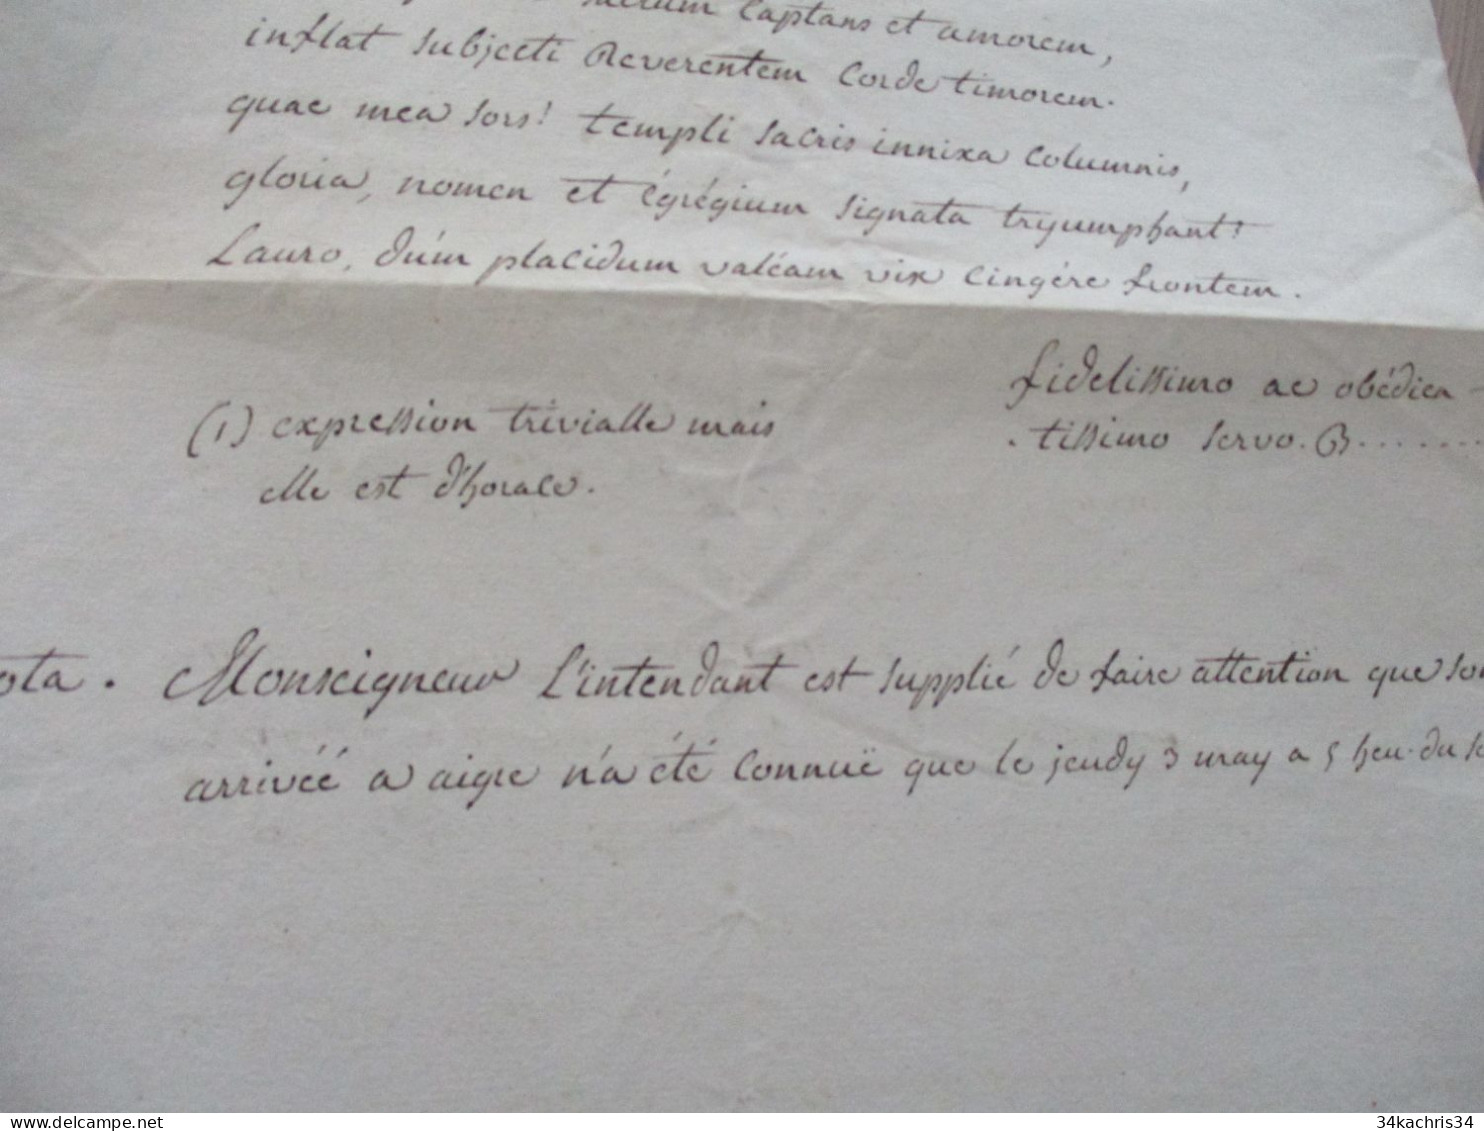 Captans et amorem,
inflat subjecti Reverentem Corde timorem.
quae mea sors! templi sacris innixa Columnis,
gloria, nomen et égrégium signata tryumphant!
Lauro, dúm placidum valéam vix Cingére frontem.
fidelissimo ac obédien-
tissimo servo. B.......
(1) expression trivialle mais
elle est d'horace.
ota. Monseigneur L'intendant est supplié de faire attention que son
arrivéé a aigre n'a été Connuë que le jeudy 3 may a 5 heu. du s
34kachris34